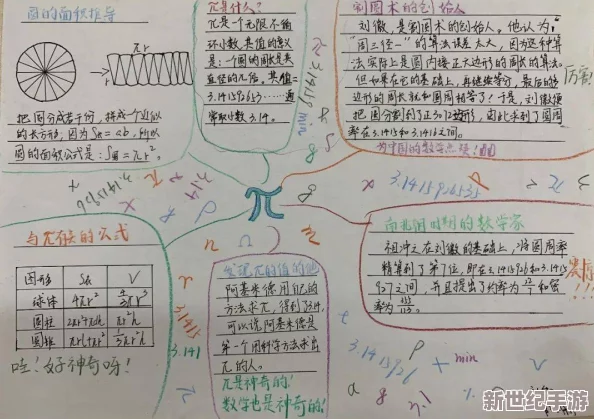 圆的面积推导
πr
r
把圆分成若干份，拼成一个近似
的长方形，因为S长=ab，所以
圆的面积公式是：S圆=πr²。
π是什么？
π是一个无限不循
环小数，其值的含义
是：一个圆的周长是其
直径的几倍，其值=
3.141592653……通
常取小数3.14。
割圆术的创始人
刘徽，是割圆术的创始人。他认为：
"周三径一"的算法误差太大，因为这种算
法实际上是圆内接正六边形的周长的算法。
但如果在它的基础上，再继续等分，最后的多
边形的周长就和圆周相等了！于是，刘徽便
把圆分割到了正3072边形，由此求到了圆周
率在3.14和3.1416之间。
为中国的数学点赞！
厉害！
π
3.1415926535
与π有关的公式
图形 S表 V
球体 4πr² 4/3πr³
圆柱 2πr²+πdh πr²h
圆锥 πrl+πr² 1/3πr²h
哇！好神奇呀！
3.1415
3.141
阿基米德用他的
方法求π，得到了3.14，
可以说，阿基米德是
第一个用科学方法求出
π的人。
π是神奇的！
数学也是神奇的！
南北朝时期的数学家
祖冲之在刘徽的基础上，将圆周率
精算到了第7位，即在3.1415926和3.1415
927之间，并且提出了约率为22/7和密
率为355/113。
3.1415926
min
新世纪手游